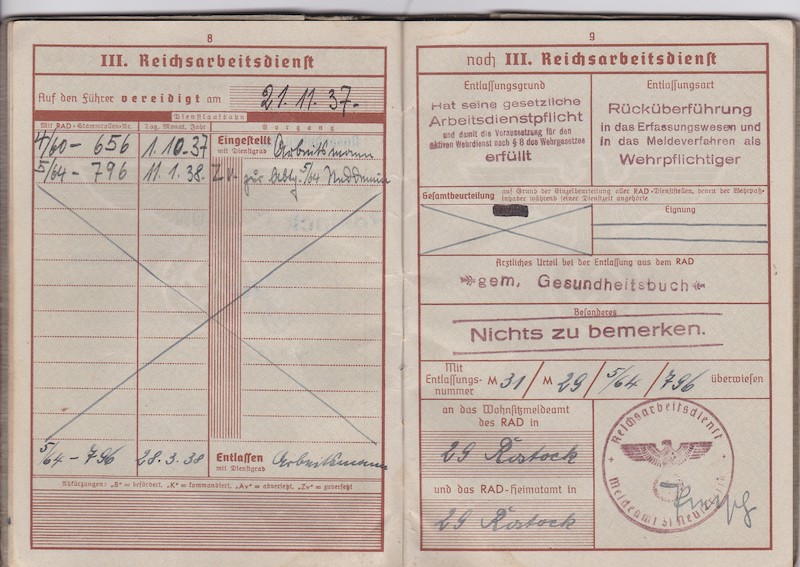 8
III. Reichsarbeitsdienst
Auf den Führer vereidigt am 21.11.37.
Dienstlaufbahn
Mit RAD-Stammrollen-Nr. Tag, Monat, Jahr Vorgang
4/60 - 656 1.10.37 Eingestellt mit Dienstgrad Arbeitsmann
5/64 - 796 11.1.38. Zv. zur Abtlg. 5/64
5/64 - 796 28.3.38 Entlassen mit Dienstgrad Arbeitsmann
Abkürzungen: „B" = befördert, „K" = kommandiert, „Av" = abversetzt, „Zv" = zuversetzt
9
noch III. Reichsarbeitsdienst
Entlassungsgrund
Hat seine gesetzliche
Arbeitsdienstpflicht
und damit die Voraussetzung für den
aktiven Wehrdienst nach § 8 des Wehrgesetzes
erfüllt
Entlassungsart
Rücküberführung
in das Erfassungswesen und
in das Meldeverfahren als
Wehrpflichtiger
Gesamtbeurteilung auf Grund der Einzelbeurteilung aller RAD-Dienststellen, denen der Wehrpaß-
inhaber während seiner Dienstzeit angehörte
Eignung
Ärztliches Urteil bei der Entlassung aus dem RAD
gem. Gesundheitsbuch
Besonderes
Nichts zu bemerken.
Mit
Entlassungs- M 31 / M 29 / 5/64 / 796 überwiesen
nummer
an das Wohnsitzmeldeamt
des RAD in
29 Rostock
und das RAD-Heimatamt in
29 Rostock
Reichsarbeitsdienst
Meldeamt 51